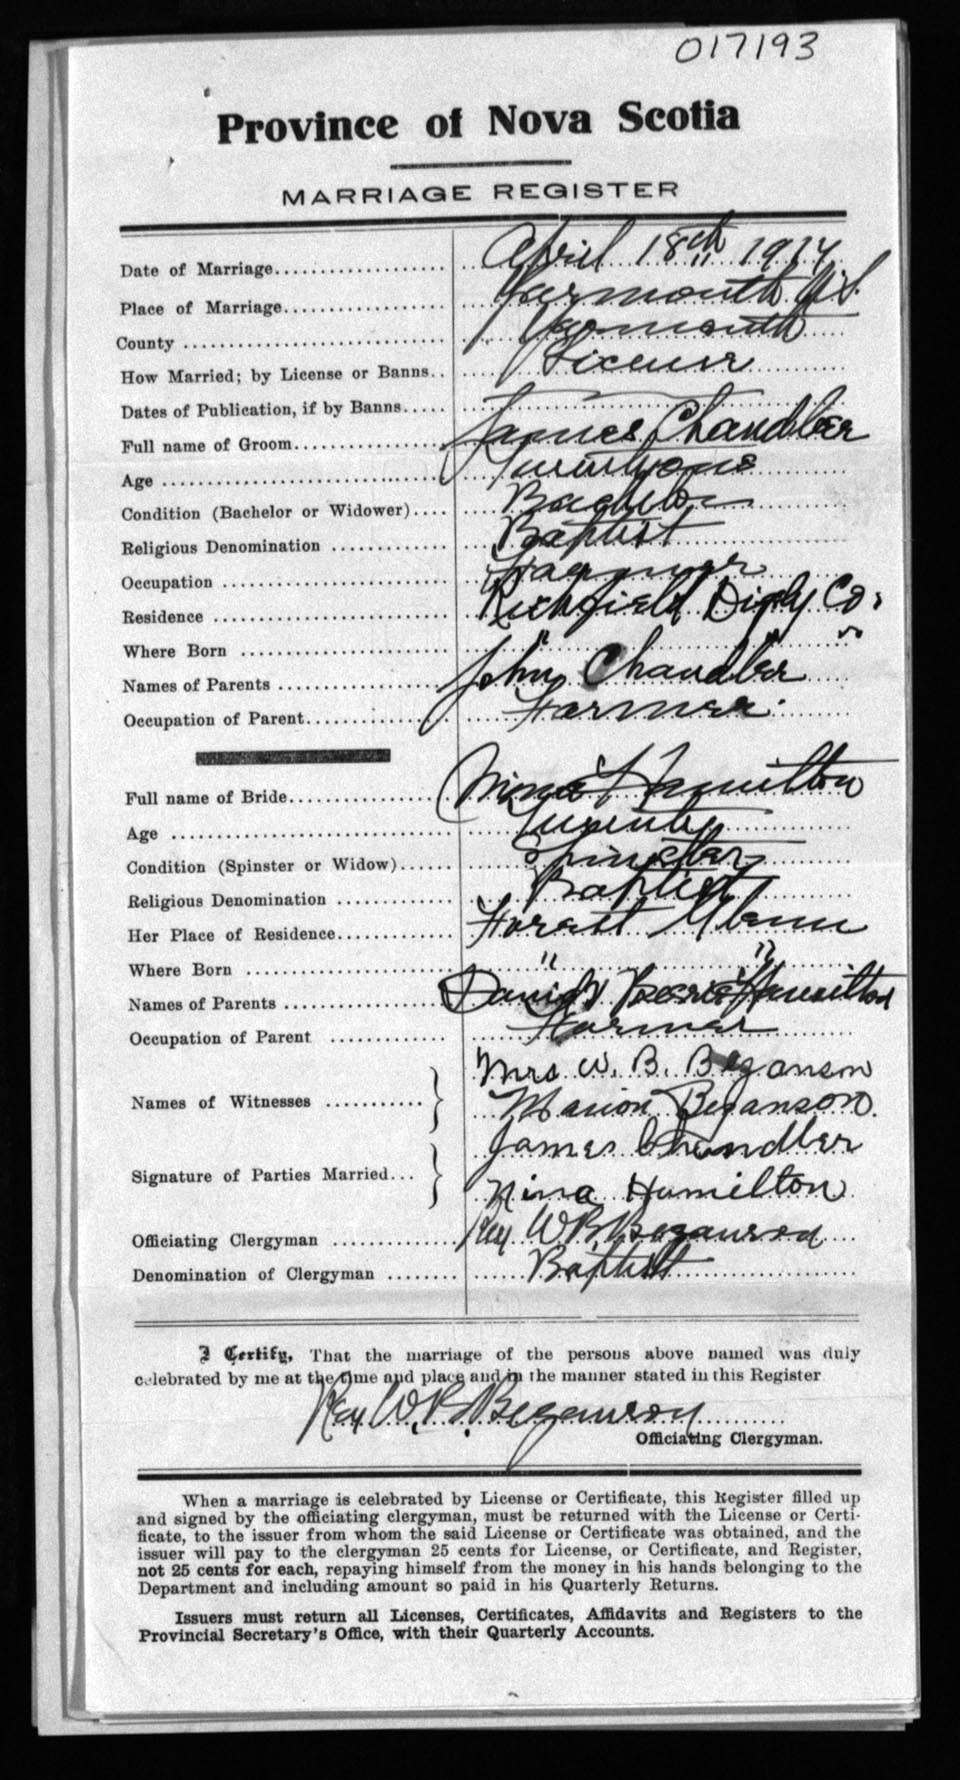 017193
Province of Nova Scotia
MARRIAGE REGISTER
Date of Marriage.................. April 18th 1914
Place of Marriage................. Yarmouth N.S.
County ........................... Yarmouth
How Married; by License or Banns.. License
Dates of Publication, if by Banns.....
Full name of Groom................ James Chandler
Age .............................. Twentyone
Condition (Bachelor or Widower).... Bachelor
Religious Denomination ............ Baptist
Occupation ....................... Farmer
Residence ........................ Richfield Digby Co.
Where Born ....................... " " "
Names of Parents ................. John Chandler
Occupation of Parent.............. Farmer
Full name of Bride................ Nina Hamilton
Age .............................. Twenty
Condition (Spinster or Widow)...... Spinster
Religious Denomination ............ Baptist
Her Place of Residence............ Forest Glenn
Where Born ....................... " "
Names of Parents ................. David Hamilton
Occupation of Parent ............. Farmer
Names of Witnesses ........... } Mrs W. B. Bezanson
Marion Bezanson.
Signature of Parties Married... } James Chandler
Nina Hamilton
Officiating Clergyman ............. Rev W B Bezanson
Denomination of Clergyman ........ Baptist
I Certify, That the marriage of the persons above named was duly
celebrated by me at the time and place and in the manner stated in this Register
Rev W. B. Bezanson
Officiating Clergyman.
When a marriage is celebrated by License or Certificate, this Register filled up
and signed by the officiating clergyman, must be returned with the License or Certi-
ficate, to the issuer from whom the said License or Certificate was obtained, and the
issuer will pay to the clergyman 25 cents for License, or Certificate, and Register,
not 25 cents for each, repaying himself from the money in his hands belonging to the
Department and including amount so paid in his Quarterly Returns.
Issuers must return all Licenses, Certificates, Affidavits and Registers to the
Provincial Secretary's Office, with their Quarterly Accounts.